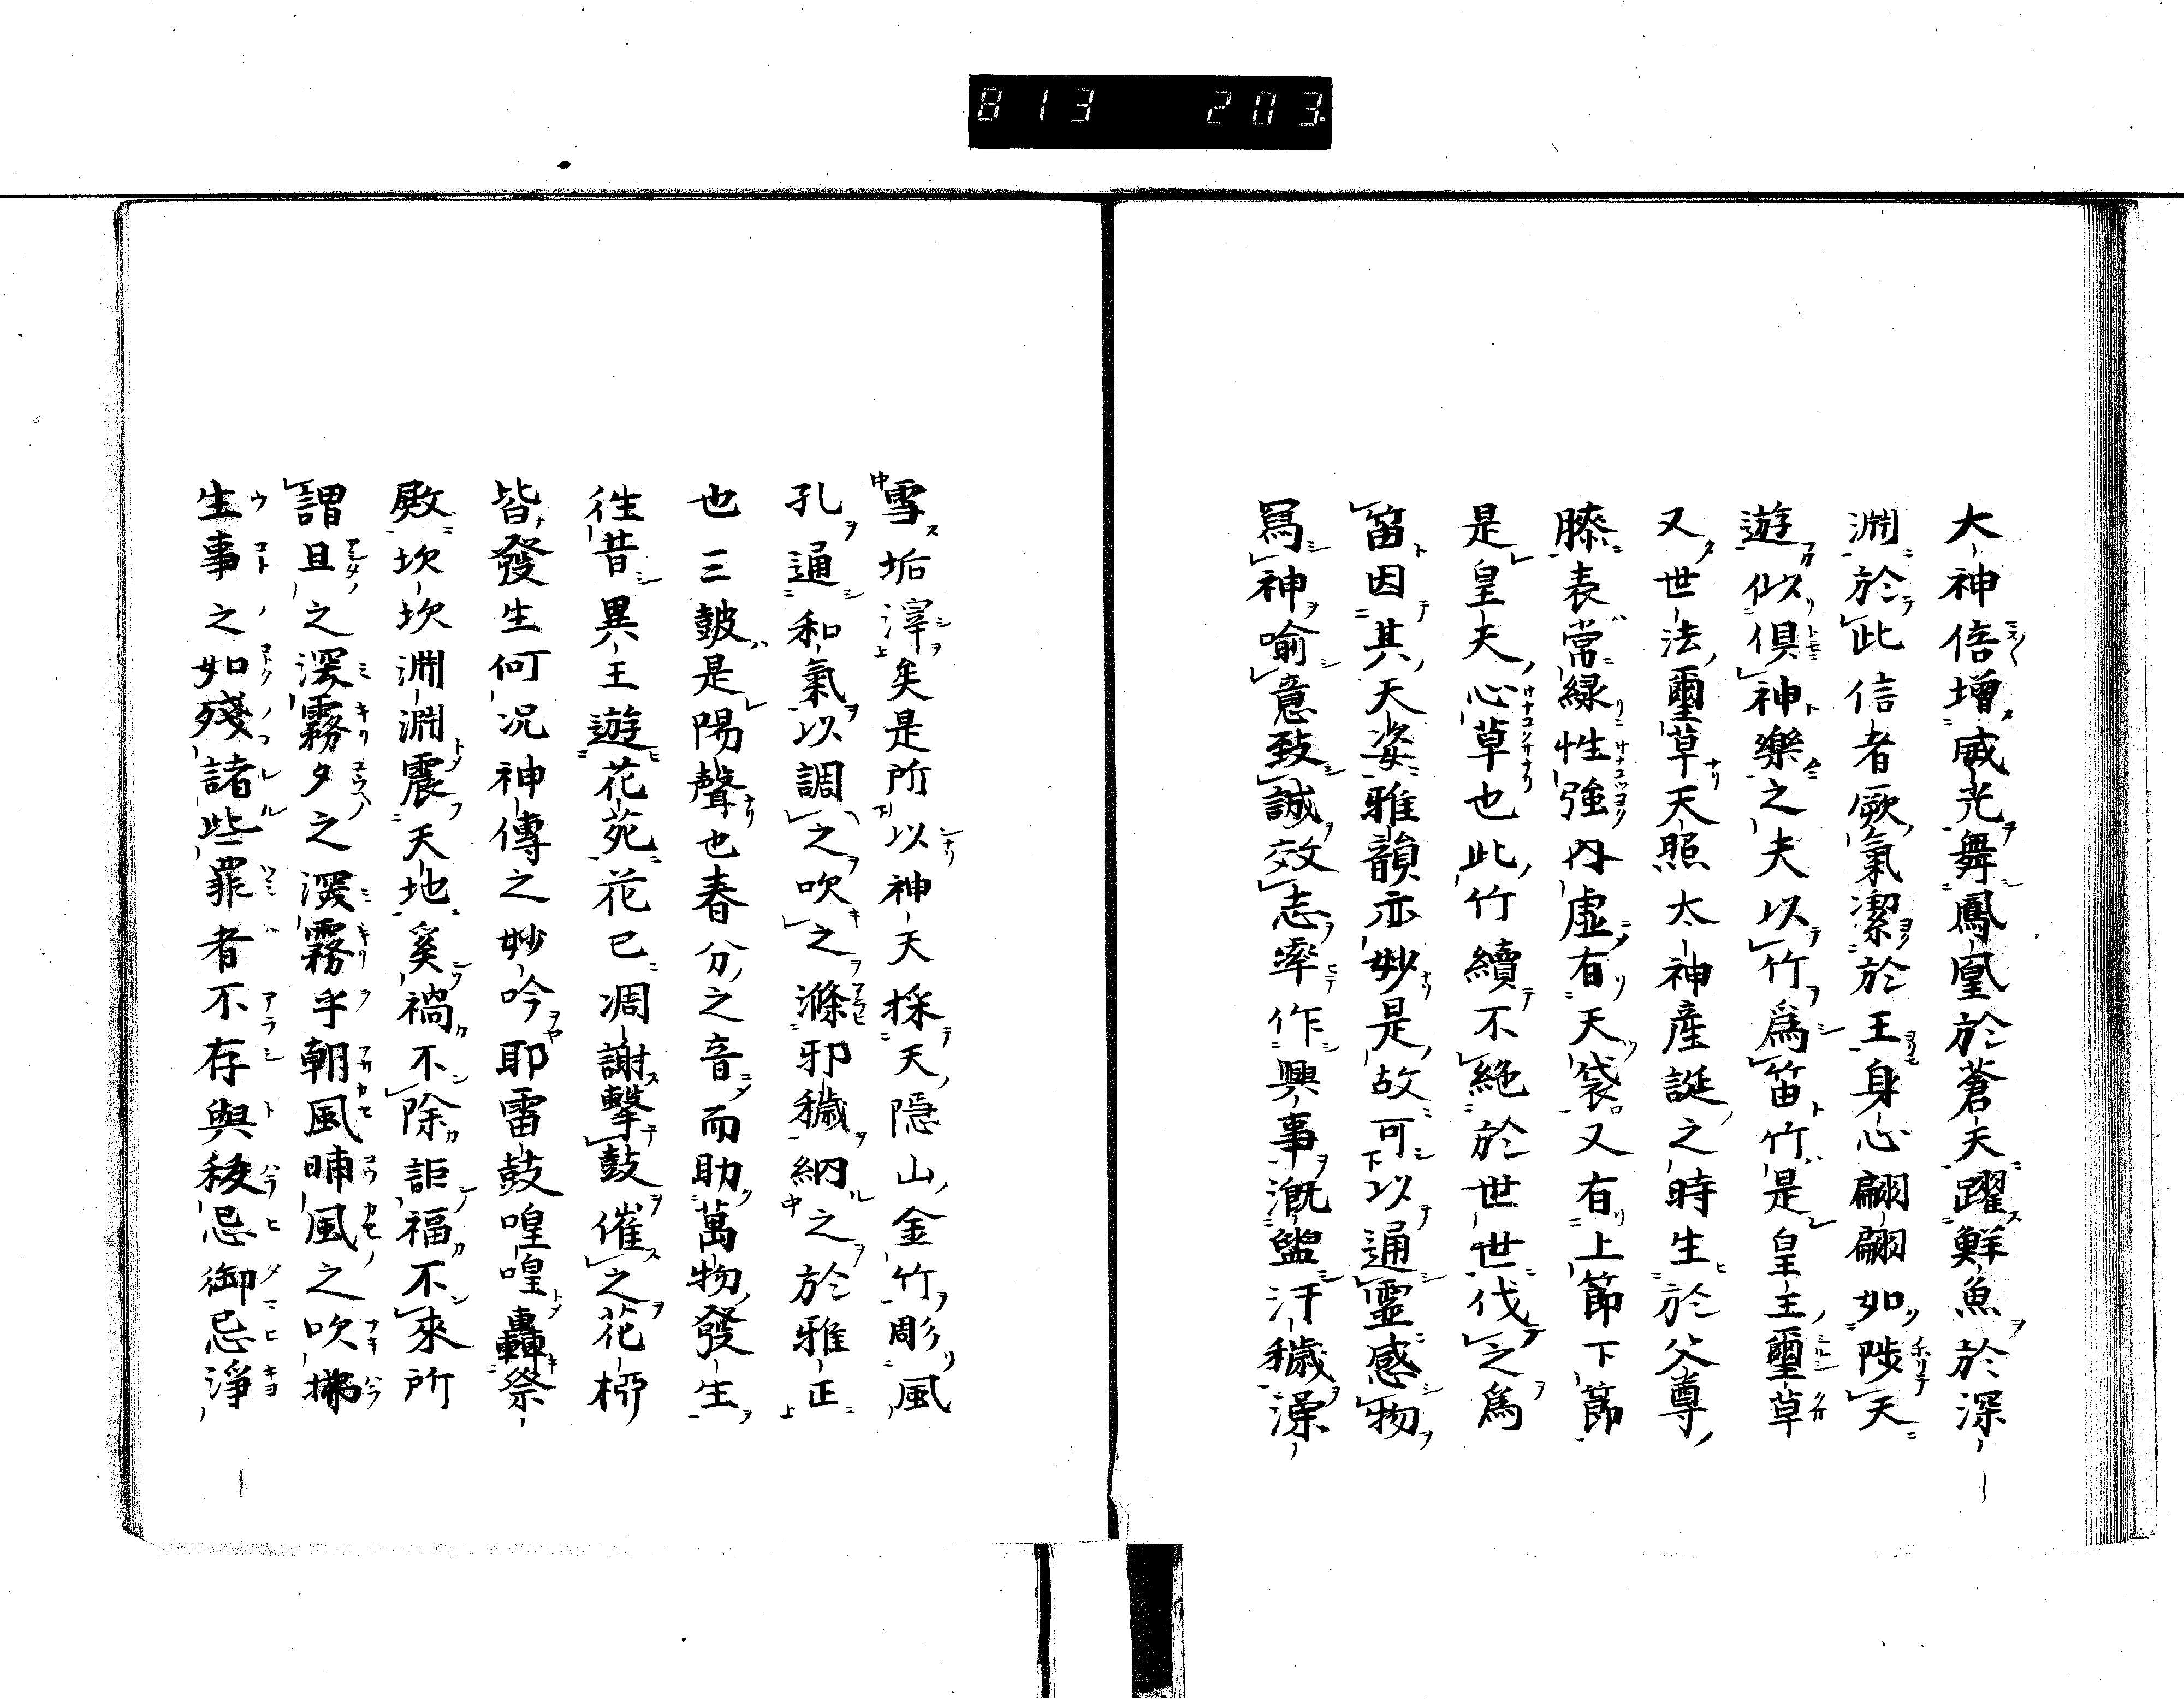 813 203.
大神倍增威光舞鳳凰於蒼天躍鮮魚於深
淵於此信者厥氣潔於王身心翩翩如陟天
遊似倶神樂之夫以竹爲笛竹是皇主璽草
又世法璽草天照太神産誕之時生於父尊
膝表常緑性強内虚有天袋又有上節下節
是皇天心草也此竹續不絶於世世伐之爲
笛因其天姿雅韻亦妙是故可以通霊感物
寫神喩意致誠效志率作興事漑盥汙穢澡
雪垢滓矣是所以神天採天隠山金竹彫風
孔通和氣以調之吹之滌邪穢納之於雅正
也三皷是陽聲也春分之音而助萬物發生
徃昔異王遊花苑花已凋謝撃鼓催之花桺
皆發生何况神傳之妙吟耶雷鼓喤喤轟祭
殿坎坎淵淵震天地奚禍不除詎福不來所
謂且之深霧夕之深霧乎朝風晡風之吹拂
生事之如殘諸些罪者不存與秡忌御忌淨